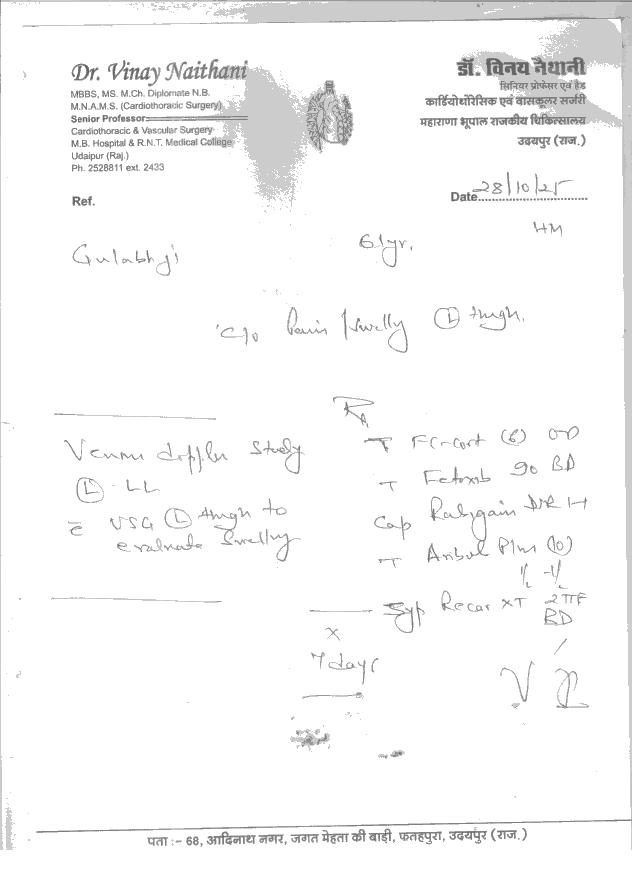 Dr. Vinay Naithani
MBBS, MS. M.Ch. Diplomate N.B.
M.N.A.M.S. (Cardiothoracic Surgery)
Senior Professor
Cardiothoracic & Vascular Surgery
M.B. Hospital & R.N.T. Medical College
Udaipur (Raj.)
Ph. 2528811 ext. 2433
डॉ. विनय नैथानी
सिनियर प्रोफेसर एवं हैड
कार्डियोथोरेसिक एवं वासकूलर सर्जरी
महाराणा भूपाल राजकीय चिकित्सालय
उदयपुर (राज.)
Ref.
Date 28/10/25
Gulabhji 61yr. HM
C/o Pain / Swelly Ⓛ thigh.
Venous doppler study
Ⓛ LL
c̄ USG Ⓛ thigh to
evaluate Swelling
Rx
T (6) OD
T 90 BD
Cap DSR
T Plus (10)
1/2 - 1/2
Syp XT 2TSF
BD
x
7 days
पता :- 68, आदिनाथ नगर, जगत मेहता की बाड़ी, फतहपुरा, उदयपुर (राज.)